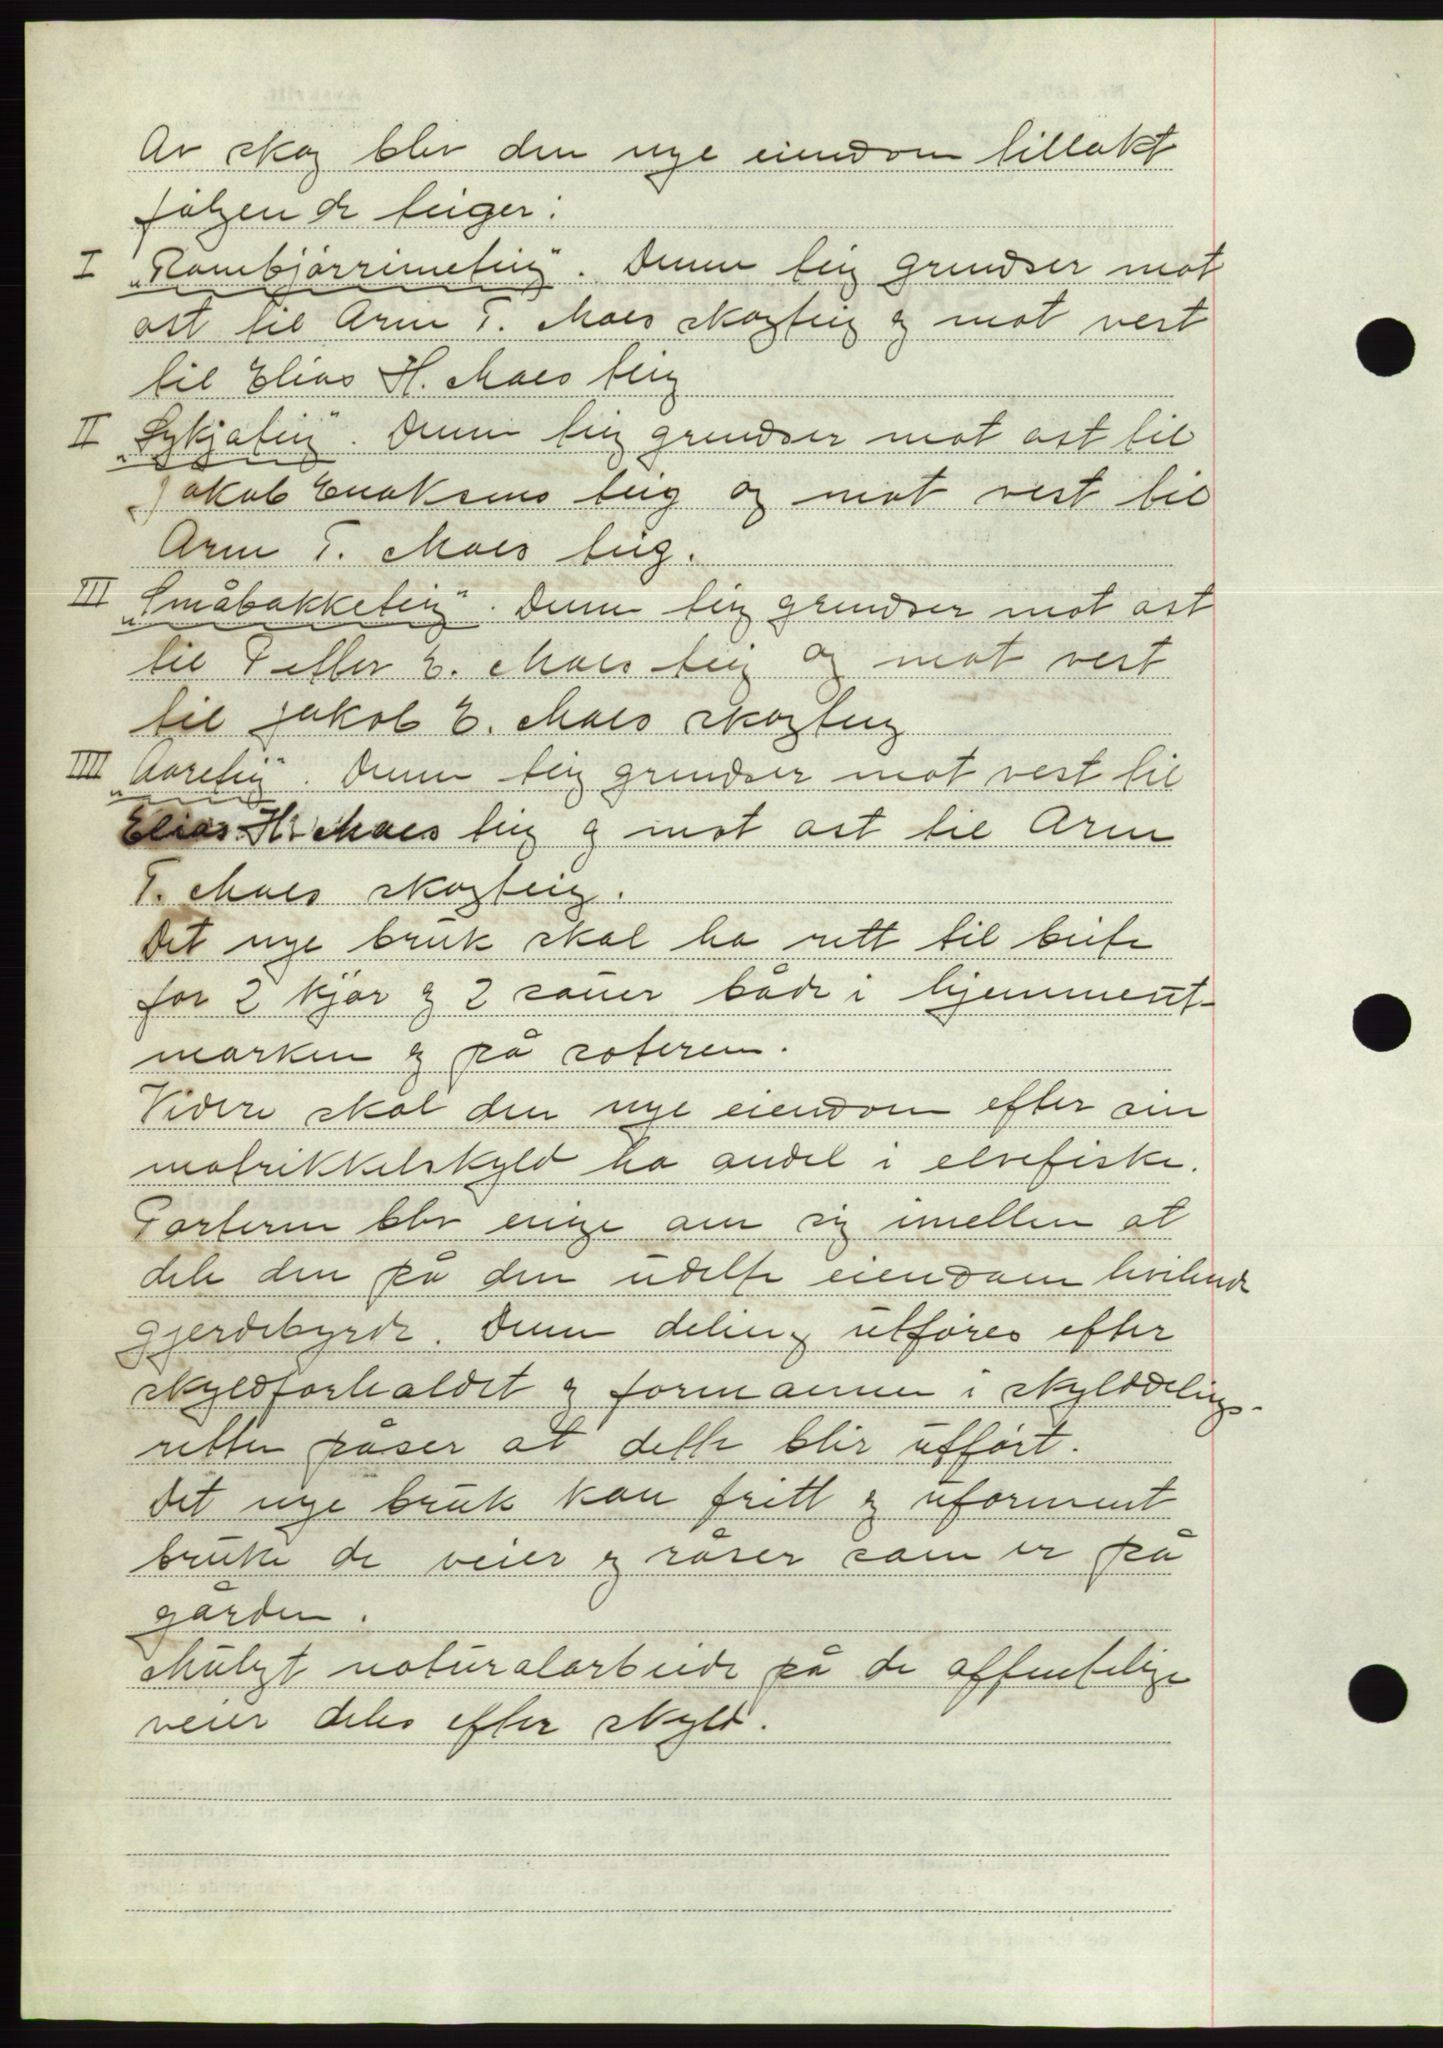 Av skog blev den nye eiendom tillakt
følgende teiger:
I „Rambjørrimeteig". Denne teig grendser mot
øst til Arne T. Moes skogteig og mot vest
til Elias H. Moes teig
II „Sykjateig". Denne teig grendser mot øst til
Jakob Enoksens teig og mot vest til
Arne T. Moes teig.
III „Småbakketeig". Denne teig grendser mot øst
til Petter E. Moes teig og mot vest
til Jakob E. Moes skogteig
IIII „Aareteig". Denne teig grendser mot vest til
Elias H. Moes teig og mot øst til Arne
T. Moes skogteig.
Det nye bruk skal ha rett til beite
for 2 kjør og 2 sauer både i hjemmeut-
marken og på soteren.
Videre skal den nye eiendom efter sin
matrikkelskyld ha andel i elvefiske.
Parterne blev enige om sig imellem at
dele den på den udelte eiendom hvilende
gjerdebyrde. Denne deling utføres efter
skyldforholdet og formannen i skylddelings-
retten påser at dette blir utført.
Det nye bruk kan fritt og uforment
bruke de veier og råser som er på
gården.
Muligt naturalarbeide på de offentelige
veier deles efter skyld.